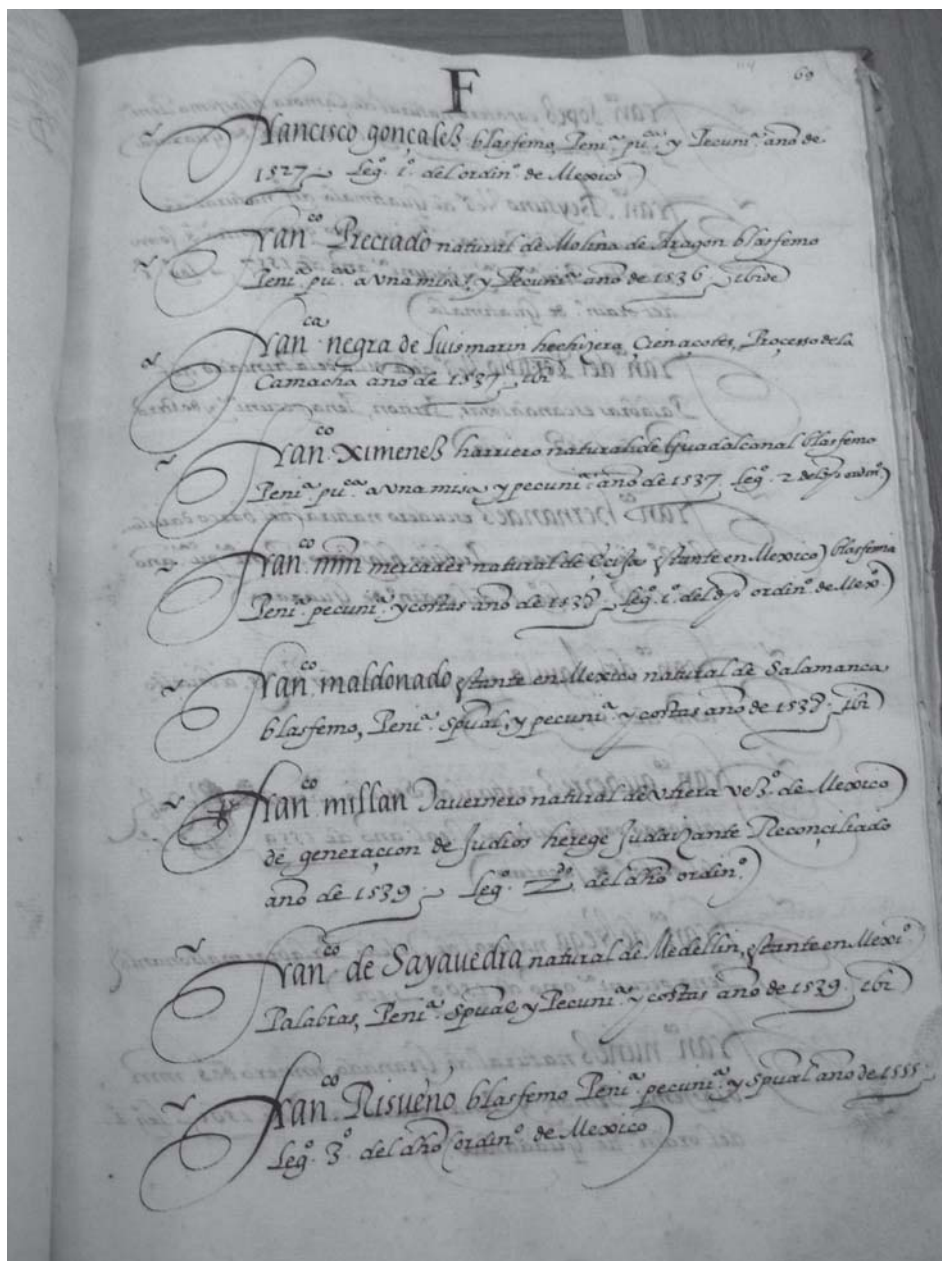 F
69
Francisco gonçales blasfemo, Peni.ª pu.ca y Pecuni.ª año de
1527 Leg.º 1.º del ordin.º de Mexico
Fran.co Preciado natural de Molina de Aragon blasfemo
Peni.ª pu.ca a vna misa, y Pecuni.ª año de 1536 ibide
Fran.ca negra de luis marin hechizera, Cienacotes, Processo de la
Camacha año de 1537 ibi
Fran.co Ximenes harriero natural de Guadalcanal blasfemo
Peni.ª pu.ca a vna misa y pecuni.ª año de 1537 Leg.º 2 del dho ordin.º
Fran.co mrn mercader natural de estante en Mexico blasfemia
Peni.ª pecuni.ª y costas año de Leg.º 1.º del dho ordin.º de Mex.º
Fran.co maldonado estante en Mexico natural de Salamanca
blasfemo, Peni.ª Spūal, y pecuni.ª y costas año de ibi
Fran.co millan Tauernero natural de vtrera vez.º de Mexico
de generaçion de Judios herege Judaizante Reconciliado
año de 1539 Leg.º 2.do del dho ordin.º
Fran.co de Sayauedra natural de Medellin, estante en Mexi.º
Palabras, Peni.ª Spūal y Pecuni.ª y costas año de 1539 ibi
Fran.co Risueño blasfemo Peni.ª pecuni.ª y Spūal año de 1555
Leg.º 3.º del dho ordin.º de Mexico